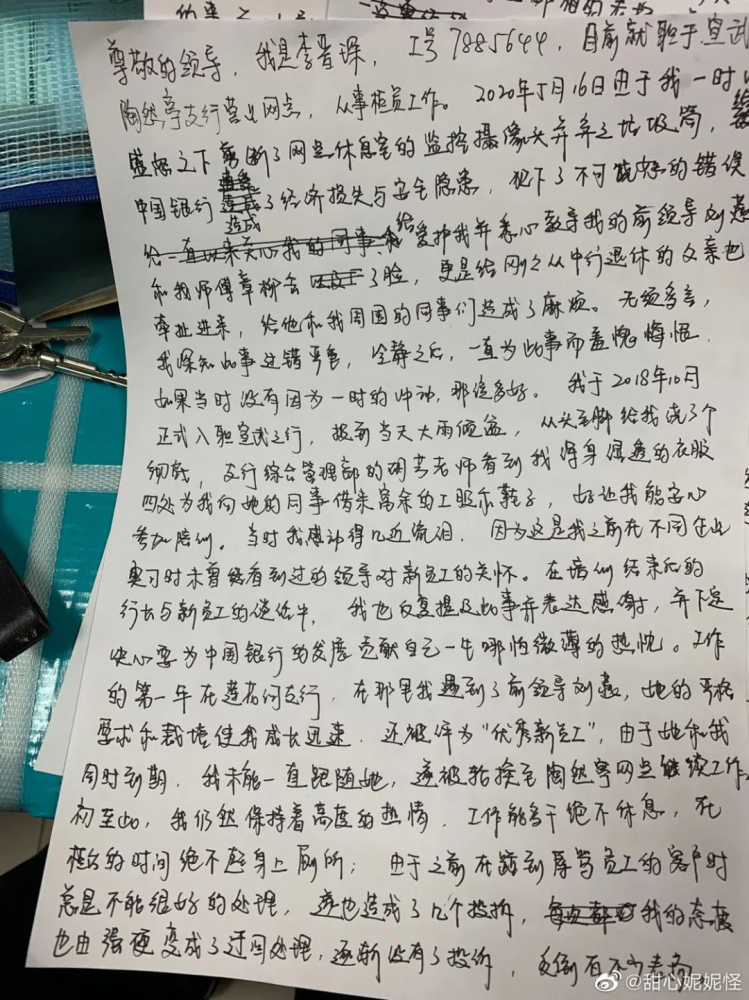 尊敬的领导,我是李晋琛,工号7885644,目前就职于宣武
陶然亭支行营业网点,从事柜员工作。2020年5月16日由于我一时
盛怒之下剪断了网点休息室的监控摄像头并弃之垃圾筒,
中国银行造成了经济损失与安全隐患,犯下了不可饶恕的错误
给一直以来关心我的同事和给爱护我并悉心教导我的前领导刘燕
和我师傅章柳会了脸,更是给刚刚从中行退休的父亲也
牵扯进来,给他和我周围的同事们造成了麻烦。无须多言,
我深知此事过错严重,冷静之后,一直为此事而羞愧悔恨
如果当时没有因为一时的冲动,那该多好。我于2018年10月
正式入职宣武支行,报到当天大雨倾盆,从头至脚给我浇了个
彻底,支行综合管理部的老师看到我浑身湿透的衣服
四处为我向她的同事借来富余的工服和鞋子,好让我能安心
参加培训。当时我感动得几近流泪,因为这是我之前在不同企业
实习时未曾经看到过的领导对新员工的关怀。在培训结束后的
行长与新员工的谈话中,我也反复提及此事并表达感谢,并下定
决心要为中国银行的发展贡献自己一生哪怕微薄的热忱。工作
的第一年在莲花河支行,在那里我遇到了前领导刘燕,她的严格
要求和栽培使我成长迅速,还被评为“优秀新员工”,由于她和我
同时到期,我未能一直跟随她,遂被轮换至陶然亭网点继续工作,
初至此,我仍然保持着高度的热情,工作能多干绝不休息,在
柜台的时间绝不起身上厕所;由于之前在遇到辱骂员工的客户时
总是不能很好的处理,遂也造成了几个投诉,我的态度
也由强硬变成了迂回处理,逐渐没有了投诉,反倒有不少
@甜心妮妮怪